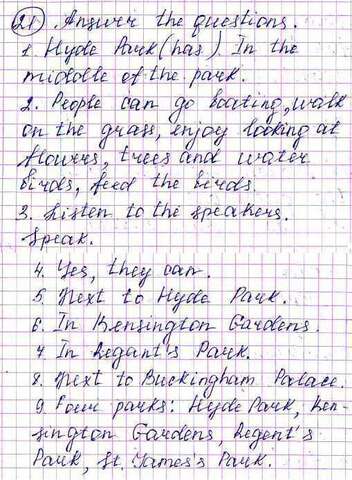 21. Answer the questions.
1. Hyde Park (has) In the
middle of the park.
2. People can go boating, walk
on the grass, enjoy looking at
flowers, trees and water
birds, feed the birds.
3. Listen to the speakers.
Speak.
4. Yes, they can.
5. Next to Hyde Park.
6. In Kensington Gardens.
7. In Regent's Park.
8. Next to Buckingham Palace.
9. Four parks: Hyde Park, Ken-
sington Gardens, Regent's
Park, St. James's Park.